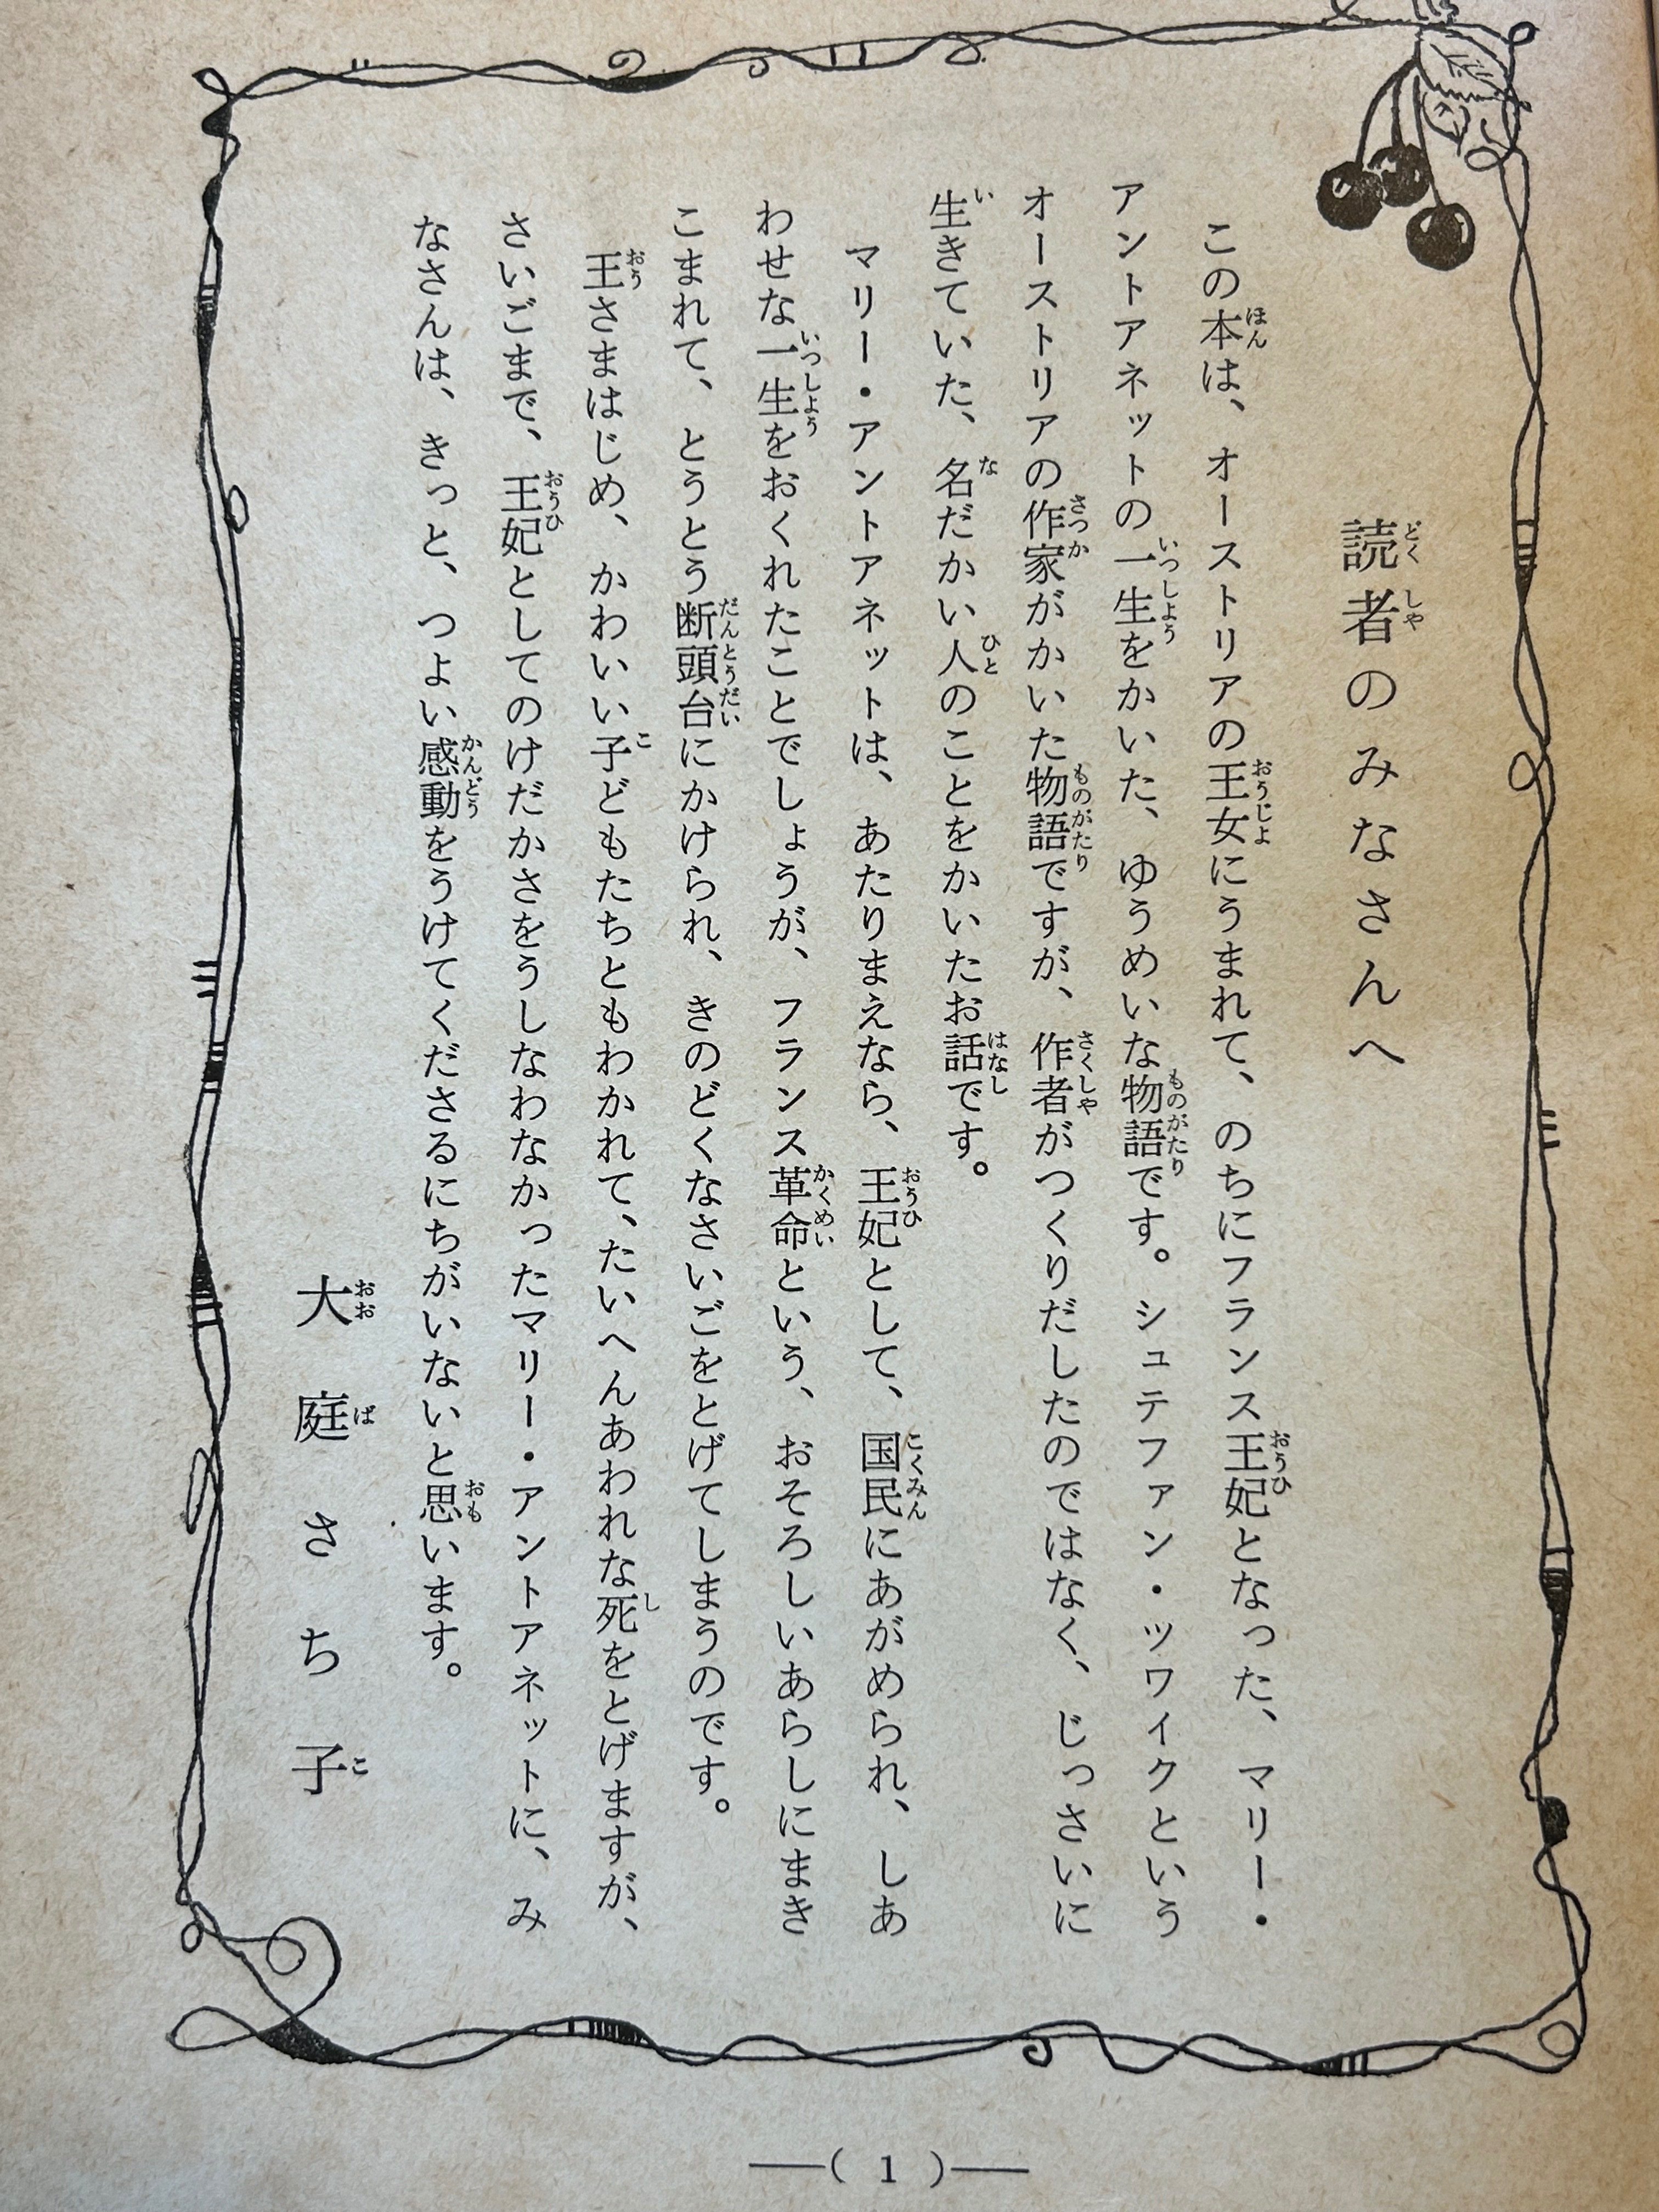 読者のみなさんへ
この本は、オーストリアの王女にうまれて、のちにフランス王妃となった、マリー・
アントアネットの一生をかいた、ゆうめいな物語です。シュテファン・ツワイクという
オーストリアの作家がかいた物語ですが、作者がつくりだしたのではなく、じっさいに
生きていた、名だかい人のことをかいたお話です。
マリー・アントアネットは、あたりまえなら、王妃として、国民にあがめられ、しあ
わせな一生をおくれたことでしょうが、フランス革命という、おそろしいあらしにまき
こまれて、とうとう断頭台にかけられ、きのどくなさいごをとげてしまうのです。
王さまはじめ、かわいい子どもたちともわかれて、たいへんあわれな死をとげますが、
さいごまで、王妃としてのけだかさをうしなわなかったマリー・アントアネットに、み
なさんは、きっと、つよい感動をうけてくださるにちがいないと思います。
大庭さち子
―( 1 )―